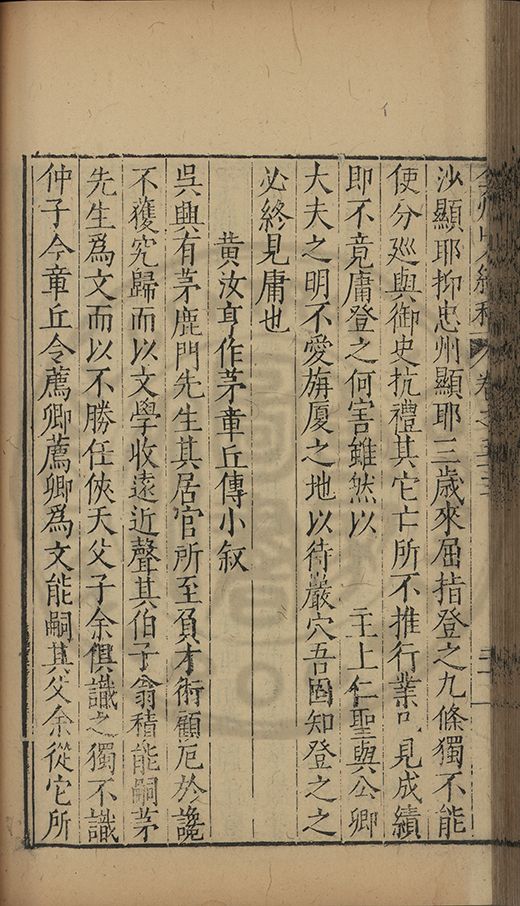 沙顯耶抑忠州顯耶三歲來屈指登之九條獨不能
使分廵與御史抗禮其它亡所不推行業已見成績
即不竟庸登之何害雖然以　主上仁聖與公卿
大夫之明不愛旃厦之地以待嚴穴吾固知登之之
必終見庸也
黄汝亨作茅章丘傳小叙
吳興有茅鹿門先生其居官所至負才術顧厄於讒
不獲究歸而以文學收遠近聲其伯子翁積能嗣茅
先生爲文而以不勝任俠夭父子余俱識之獨不識
仲子今章丘令薦卿薦卿爲文能嗣其父余從它所